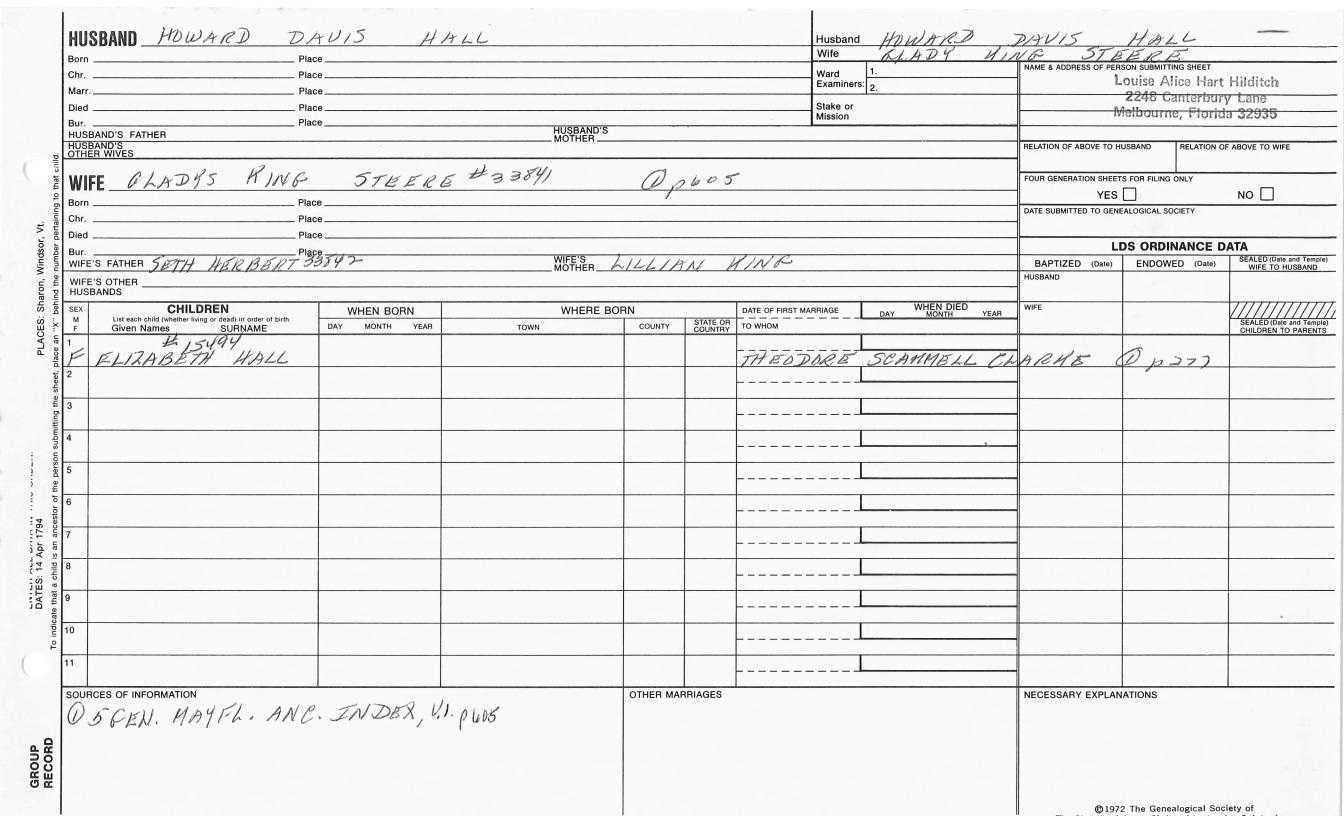 HUSBAND HOWARD DAVIS HALL
Born Place
Chr. Place
Marr. Place
Died Place
Bur. Place
HUSBAND'S FATHER HUSBAND'S MOTHER
HUSBAND'S OTHER WIVES
Husband HOWARD DAVIS HALL
Wife GLADY KING STEERE
Ward Examiners: 1.
2.
Stake or Mission
NAME & ADDRESS OF PERSON SUBMITTING SHEET
Louise Alice Hart Hilditch
2248 Canterbury Lane
Melbourne, Florida 32935
RELATION OF ABOVE TO HUSBAND RELATION OF ABOVE TO WIFE
FOUR GENERATION SHEETS FOR FILING ONLY
YES NO
DATE SUBMITTED TO GENEALOGICAL SOCIETY
WIFE GLADYS KING STEERE #33841 ① p605
Born Place
Chr. Place
Died Place
Bur. Place
WIFE'S FATHER SETH HERBERT 33842 WIFE'S MOTHER LILLIAN KING
WIFE'S OTHER HUSBANDS
LDS ORDINANCE DATA
BAPTIZED (Date) ENDOWED (Date) SEALED (Date and Temple) WIFE TO HUSBAND
HUSBAND
WIFE
SEALED (Date and Temple) CHILDREN TO PARENTS
SEX M F
CHILDREN
List each child (whether living or dead) in order of birth
Given Names SURNAME
WHEN BORN
DAY MONTH YEAR
WHERE BORN
TOWN COUNTY STATE OR COUNTRY
DATE OF FIRST MARRIAGE
TO WHOM
WHEN DIED
DAY MONTH YEAR
1 #15494
F ELIZABETH HALL THEODORE SCAMMELL CLARKE ① p277
2
3
4
5
6
7
8
9
10
11
SOURCES OF INFORMATION
① 5 GEN. MAYFL. ANC. INDEX, V.1. p605
OTHER MARRIAGES
NECESSARY EXPLANATIONS
©1972 The Genealogical Society of
PLACES: Sharon, Windsor, Vt.
DATES: 14 Apr 1794
To indicate that a child is an ancestor of the person submitting the sheet, place an "X" behind the number pertaining to that child.
GROUP RECORD